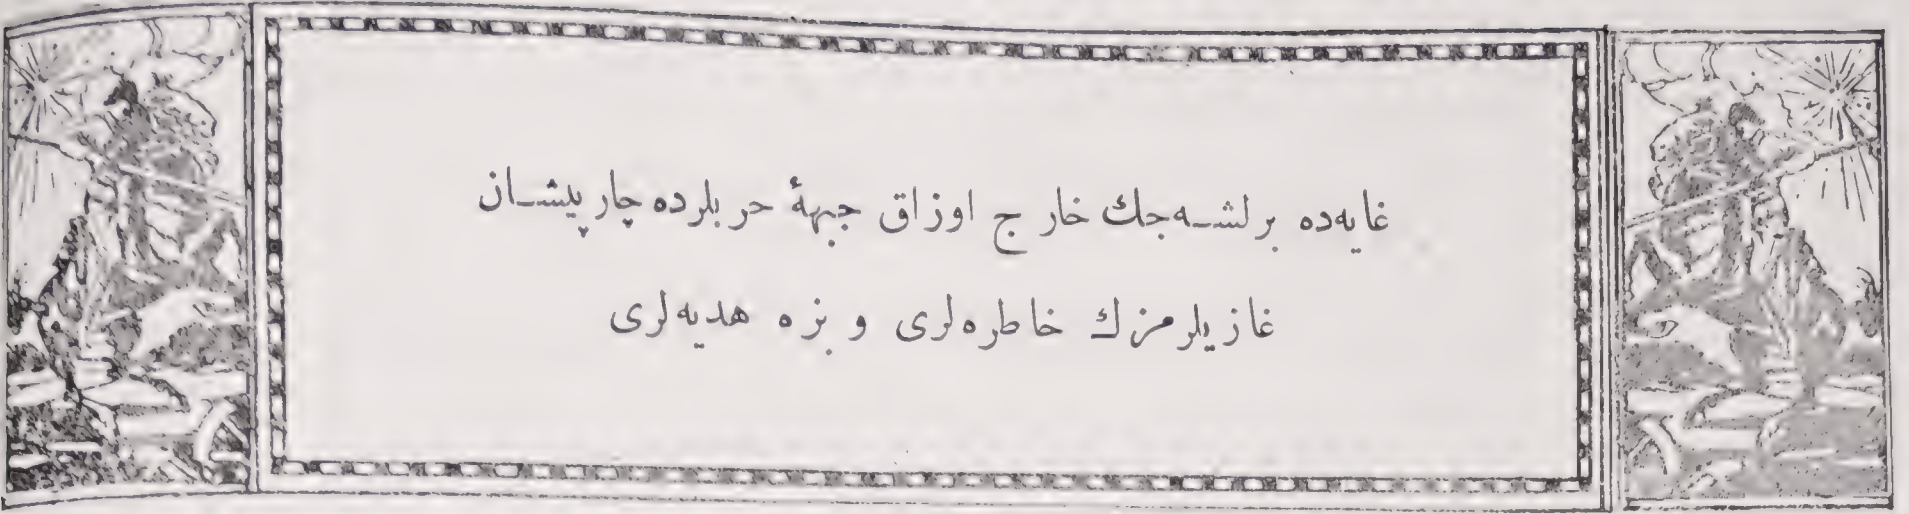 غایه‌ده برلشـه‌جك خارج اوزاق جبههٔ حربلرده چارپیشـان
غازیلرمزك خاطره‌لری و بزه هدیه‌لری